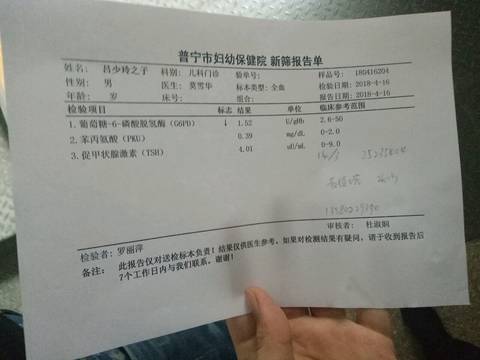 普宁市妇幼保健院 新筛报告单
姓名: 吕少玲之子 科别: 儿科门诊 验单号: 样品号: 180416204
性别: 男 医生: 莫雪华 标本类型: 全血 检验日期: 2018-4-16
年龄: 岁 床号: 组合: 报告日期: 2018-4-16
检验项目 标志 结果 单位 临床参考范围
1. 葡萄糖-6-磷酸脱氢酶 (G6PD) ↓ 1.52 U/gHb 2.6-50
2. 苯丙氨酸 (PKU) 0.39 mg/dL 0-2.0
3. 促甲状腺激素 (TSH) 4.01 uU/mL 0-9.0
检验者: 罗丽萍 审核者: 杜淑娴
备注: 此报告仅对送检标本负责!结果仅供医生参考。如果对检测结果有疑问,请于收到报告后
7个工作日内与我们联系。谢谢!